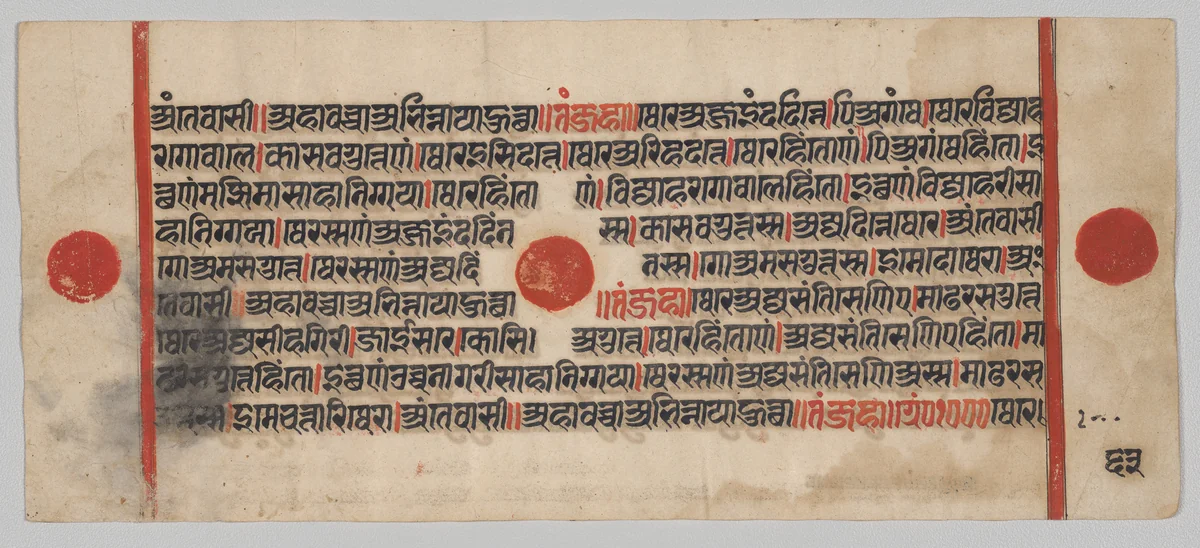 अंतेवासी॥अहावच्चाअभिन्नायाहुत्था॥तंजहा॥थेरेअज्जइंददिन्ने।पिअगंथे।थेरेविज्जाह
रगोवाले।कासवगुत्तेणं।थेरेइसिदत्ते।थेरेअरिहदत्ते।थेरेहिंतोणं।पिअगंथेहिंतो।इ
त्थणंमज्झिमासाहानिग्गया।थेरेहिंतो णं।विज्जाहरगोवालेहिंतो।इत्थणंविज्जाहरीसा
हानिग्गया।थेरस्सणंअज्जइंददिंन स्स।कासवगुत्तस्स।अज्जदिन्नेथेरे।अंतेवासी
गोअमसगुत्ते।थेरस्सणंअज्जदिं नस्स।गोअमसगुत्तस्स।इमेदोथेरा।अं
तेवासी॥अहावच्चाअभिन्नायाहुत्था ॥तंजहा॥थेरेअज्जसंतिसेणिए।माढरसगुत्ते
थेरेअज्जसीहगिरी।जाईसरे।कोसि। अगुत्ते।थेरेहिंतोणं।अज्जसंतिसेणिएहिंतो।मा
ढरसगुत्तेहिंतो।इत्थणंउच्चनागरीसाहानिग्गया।थेरस्सणंअज्जसंतिसेणिअस्स।माढरस
गुत्तस्स।इमेचत्तारिथेरा।अंतेवासी॥अहावच्चाअभिन्नायाहुत्था॥तंजहा॥ग्रं०१०००थेरे
६३